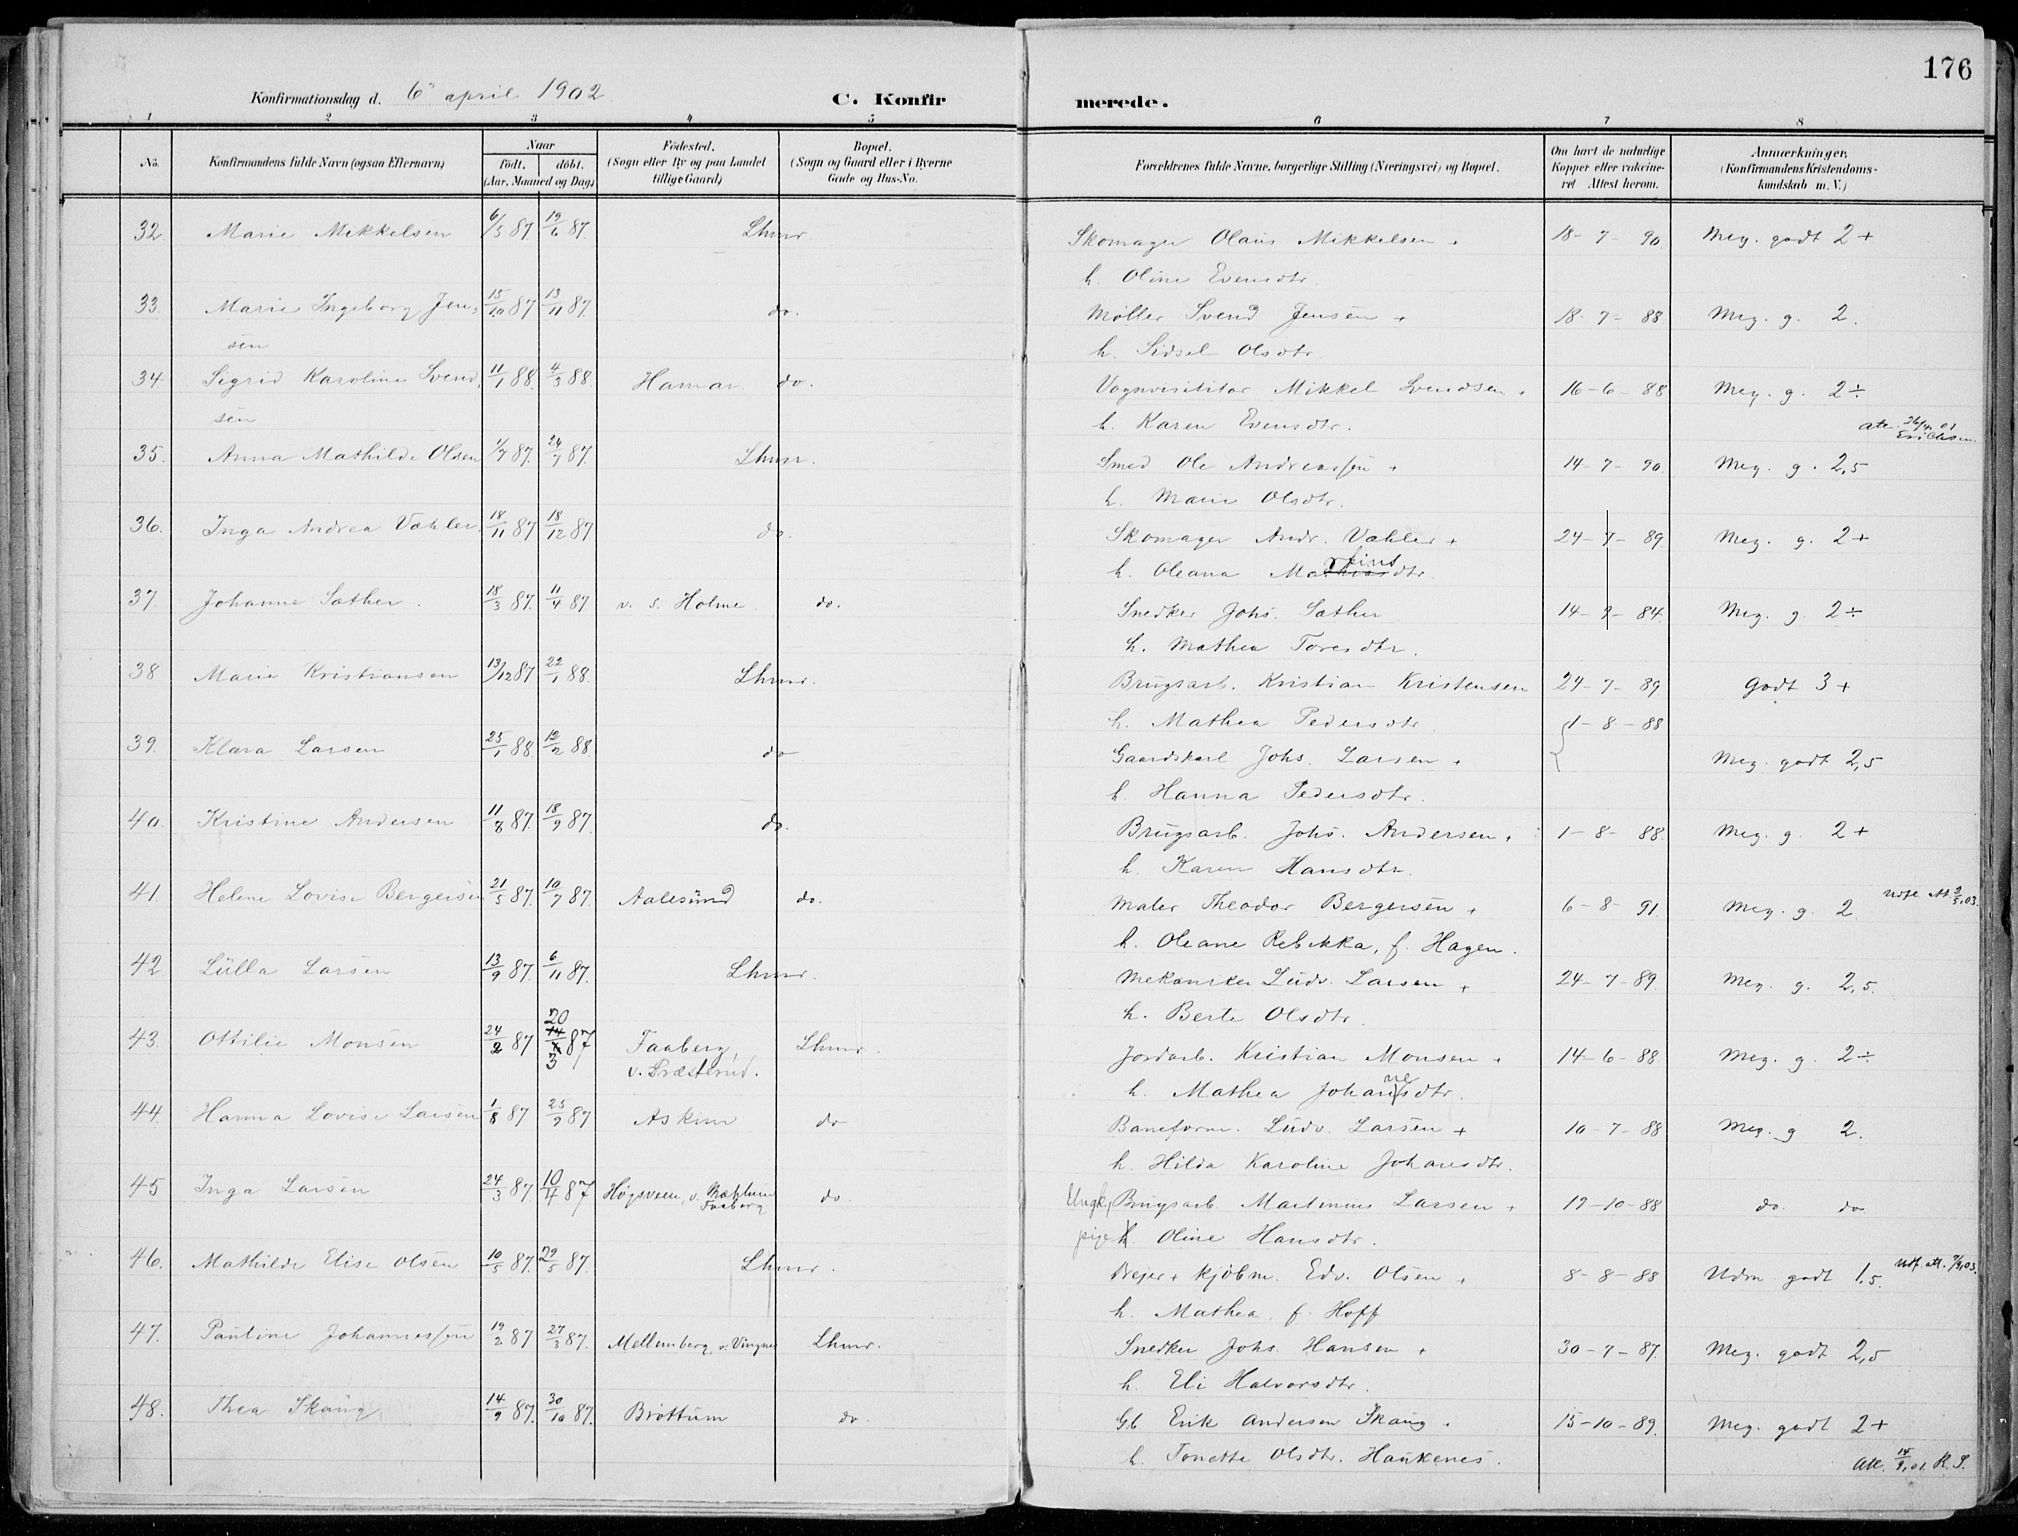 176
Konfirmationsdag d. 6 april 1902
C. Konfirmerede.
1 2 3 4 5 6 7 8
No. Konfirmandens fulde Navn (ogsaa Efternavn) Naar födt. döbt. (Aar, Maaned og Dag) Födested. (Sogn eller By og paa Landet tillige Gaard) Bopæl. (Sogn og Gaard eller i Byerne Gade og Hus-No. Forældrenes fulde Navne, borgerlige Stilling (Næringsvei) og Bopæl. Om havt de naturlige Kopper eller vakcineret Attest herom. Anmærkninger. (Konfirmandens Kristendomskundskab m. V.)
32. Marie Mikkelsen 6/5 87 19/6 87. Lhmr Skomager Olaus Mikkelsen + 18-7-90. Meg. godt 2+
h. Oline Evensdtr.
33. Marie Ingeborg Jen- 15/10 87 13/11 87. do. Møller Svend Jensen + 18-7-88 Meg. g. 2.
sen h. Sidsel Olsdtr.
34 Sigrid Karoline Svend- 11/1 88. 4/3 88. Hamar do. Vognvisititor Mikkel Svendsen + 16-6-88 Meg. g. 2÷
sen h. Karen Evensdtr.
35. Anna Mathilde Olsen 1/7 87. 24/7 87. Lhmr. Smed Ole Andreassen + 14-7-90. Meg. g. 2,5
h. Marie Olsdtr.
36. Inga Andrea Væhler 18/11 87. 18/12 87 do. Skomager Andr. Væhler + 24-7-89 Meg. g. 2+
h. Oleana Mathiasdtr.
37. Johanne Sæther. 18/3 87. 11/4 87 v. s. Holme. do. Snedker Johs. Sæther 14-9-84. Meg. g 2÷
h. Mathea Toresdtr.
38 Marie Kristiansen 13/12 87 22/1 88. Lhmr. Brugsarb. Kristian Kristensen 24-7-89 Godt 3+
h. Mathea Pedersdtr. 1-8-88
39. Klara Larsen 25/1 88 12/2 88. do Gaardskarl Johs. Larsen + Meg. godt 2,5
h. Hanna Pedersdtr.
40. Kristine Andersen 11/8 87. 18/9 87. do. Brugsarb. Johs. Andersen + 1-8-88. Meg. g. 2+
h. Karen Hansdtr.
41. Helene Lovise Bergersen 21/5 87. 10/7 87. Aalesund do. Maler Theodor Bergersen + 6-8-91. Meg. g. 2
h. Oleane Rebekka, f. Hagen.
42. Lulla Larsen 13/9 87. 6/11 87. Lhmr. Mekaniker Ludv. Larsen + 24-7-89. Meg. g. 2,5.
h. Berte Olsdtr.
43. Ottilie Monsen 24/2 87 20/3 87 Faaberg, Lhmr. Jordarb. Kristian Monsen + 14-6-88 Meg. g. 2÷
v. Præsterud. h. Mathea Johannesdtr.
44. Hanna Lovise Larsen 1/8 87 25/9 87 Askim do Baneform. Ludv. Larsen + 10-7-88 Meg. g 2.
h. Hilda Karoline Johansdtr.
45 Inga Larsen 24/3 87 10/4 87 Høgsveen, v. Mæhlum Faaberg do. Ungk. Brugsarb. Martinius Larsen + 19-10-88 do. do
pige h. Oline Hansdtr.
46. Mathilde Elise Olsen 10/5 87. 29/5 87. Lhmr. Drejer + kjøbm. Edv. Olsen + 8-8-88 Udm. godt 1,5. Udf. att.
h. Mathea f. Hoff
47. Pauline Johannessen 19/2 87 27/3 87. Mellumberg, v. Vingnes Lhmr. Snedker Johs. Hansen + 30-7-87. Meg. godt 2,5
h. Eli Halvorsdtr.
48. Thea Skaug 14/9 87. 30/10 87. Brøttum do. Gb Erik Andersen Skaug. 15-10-89. Meg. godt 2+
h. Tonette Olsdtr. Haukenes. Att. 14/9 01. K. S.